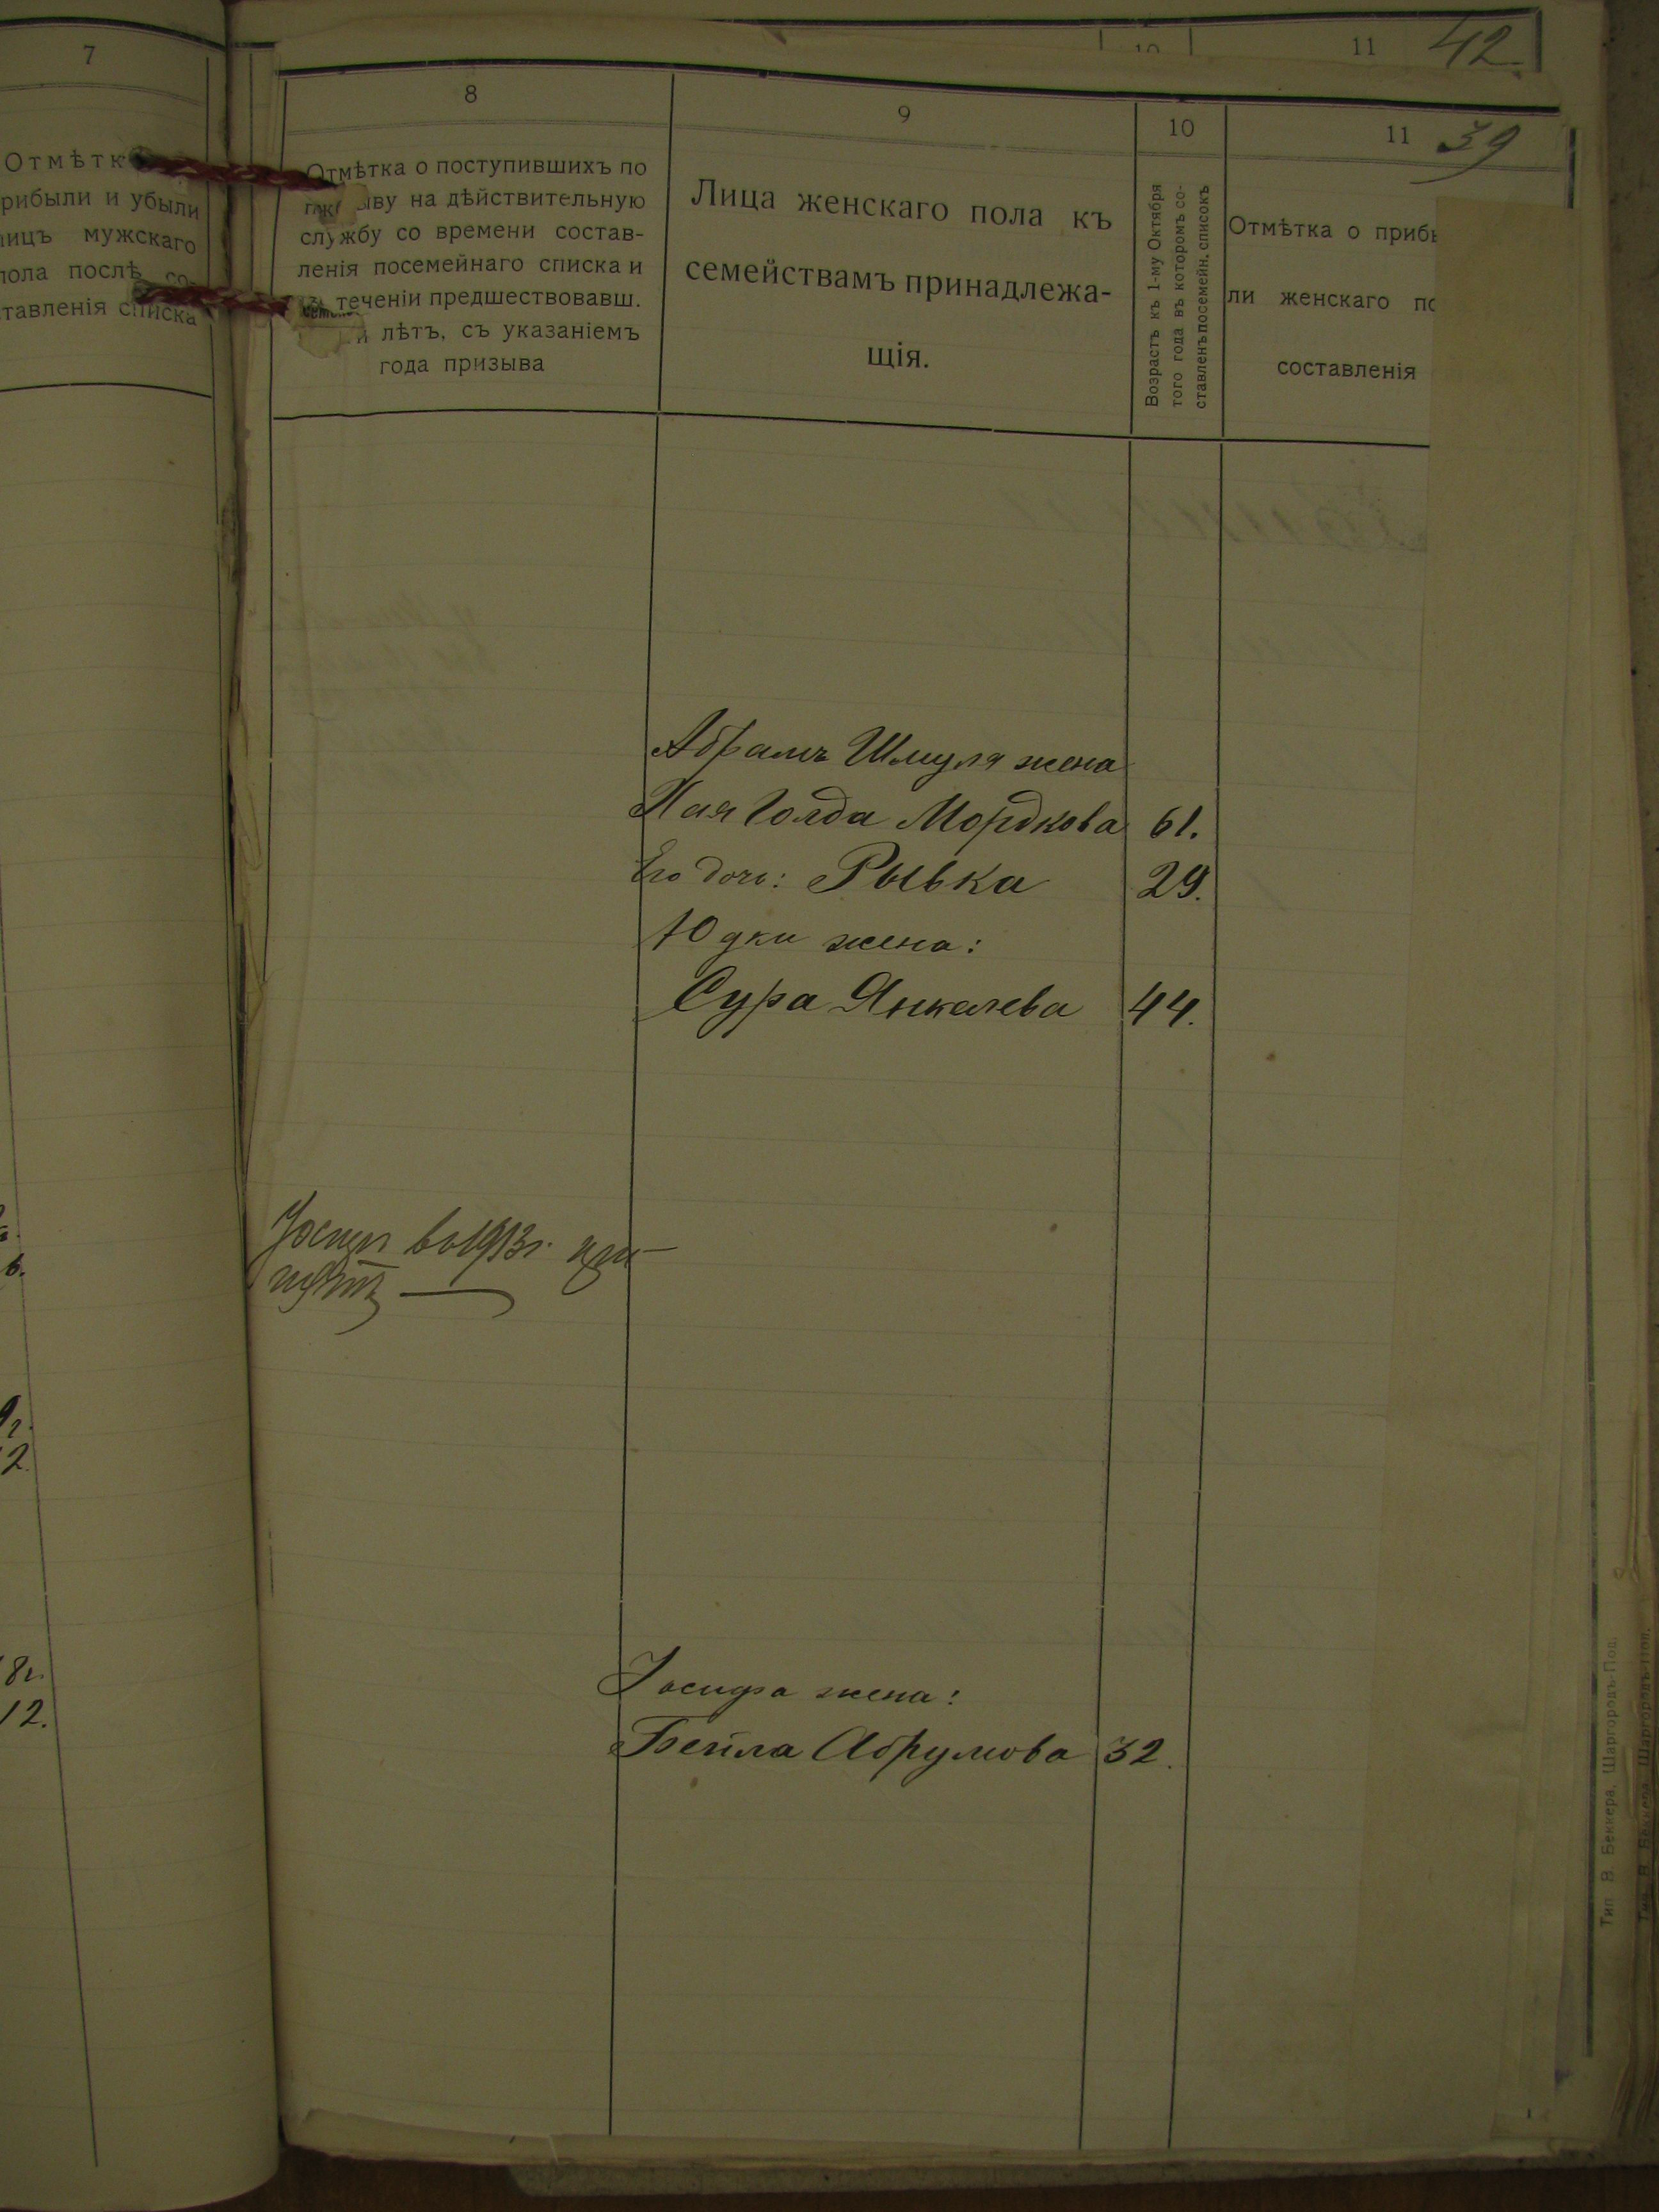 7
Отмѣтк
рибыли и убыли
лицъ мужскаго
пола послѣ со-
тавленія списка
10
11
42
8
9
10
11
39
Отмѣтка о поступившихъ по
ыву на дѣйствительную
службу со времени состав-
ленія посемейнаго списка и
теченіи предшествовавш.
и лѣтъ, съ указаніемъ
года призыва
Лица женскаго пола къ
семействамъ принадлежа-
щія.
Возрастъ къ 1-му Октября
того года въ которомъ со-
ставленъ посемейн. списокъ
Отмѣтка о приб
ли женскаго по
составленія
Абрамъ Шмуля жена
Хая Голда Мордкова 61.
Его дочь: Рывка 29.
Юдки жена:
Сура Янкелева 44.
въ 1913г.
Іосифа жена:
Бейла Абрумова 32.
6.
9г.
2.
8г.
12.
Тип В. Беккера, Шаргородъ-Под.
Тип. В. Беккера, Шаргородъ-Под.